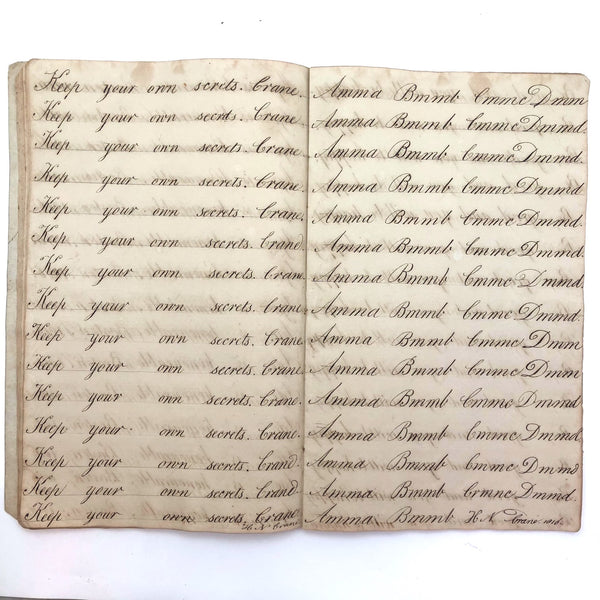 Keep your own screts. Crane.
Keep your own secrds. Crane.
Keep your own secrets. Crane
Keep your own secrets. Crane.
Keep your own secrets. Crane.
Keep your own secrets. Crand
Keep your own secrets. Crane
Keep your own secrets. Crane
Keep your own secrets. Crane.
Keep your own secrets. Crane
Keep your own secrets. Crane.
Keep your own secrets. Crane.
Keep your own secrets. Crand.
Keep your own secrets. Crand
Keep your own secrets. Crane
H. N. Crane
Amma Bmmb Cmmc Dmm
Amma Bmmb Cmmc Dmmd.
Amma Bmmb Cmmc Dmmd
Amma Bmmb Cmmc Dmmd.
Amma Bmmb Cmmc Dmmd.
Amma Bmmb Cmmc Dmmd.
Amma Bmmb Cmmc Dmmd.
Amma Bmmb Cmmc Dmmd.
Amma Bmmb Cmmc Dmm
Amma Bmmb Cmmc Dmm
Amma Bmmb Cmmc Dmmd.
Amma Bmmb Cmmc Dmmd.
Amma Bmmb Cmmc Dmmd
Amma Bmmb Cmmc Dmmd.
Amma Bmmb H. N. Crane